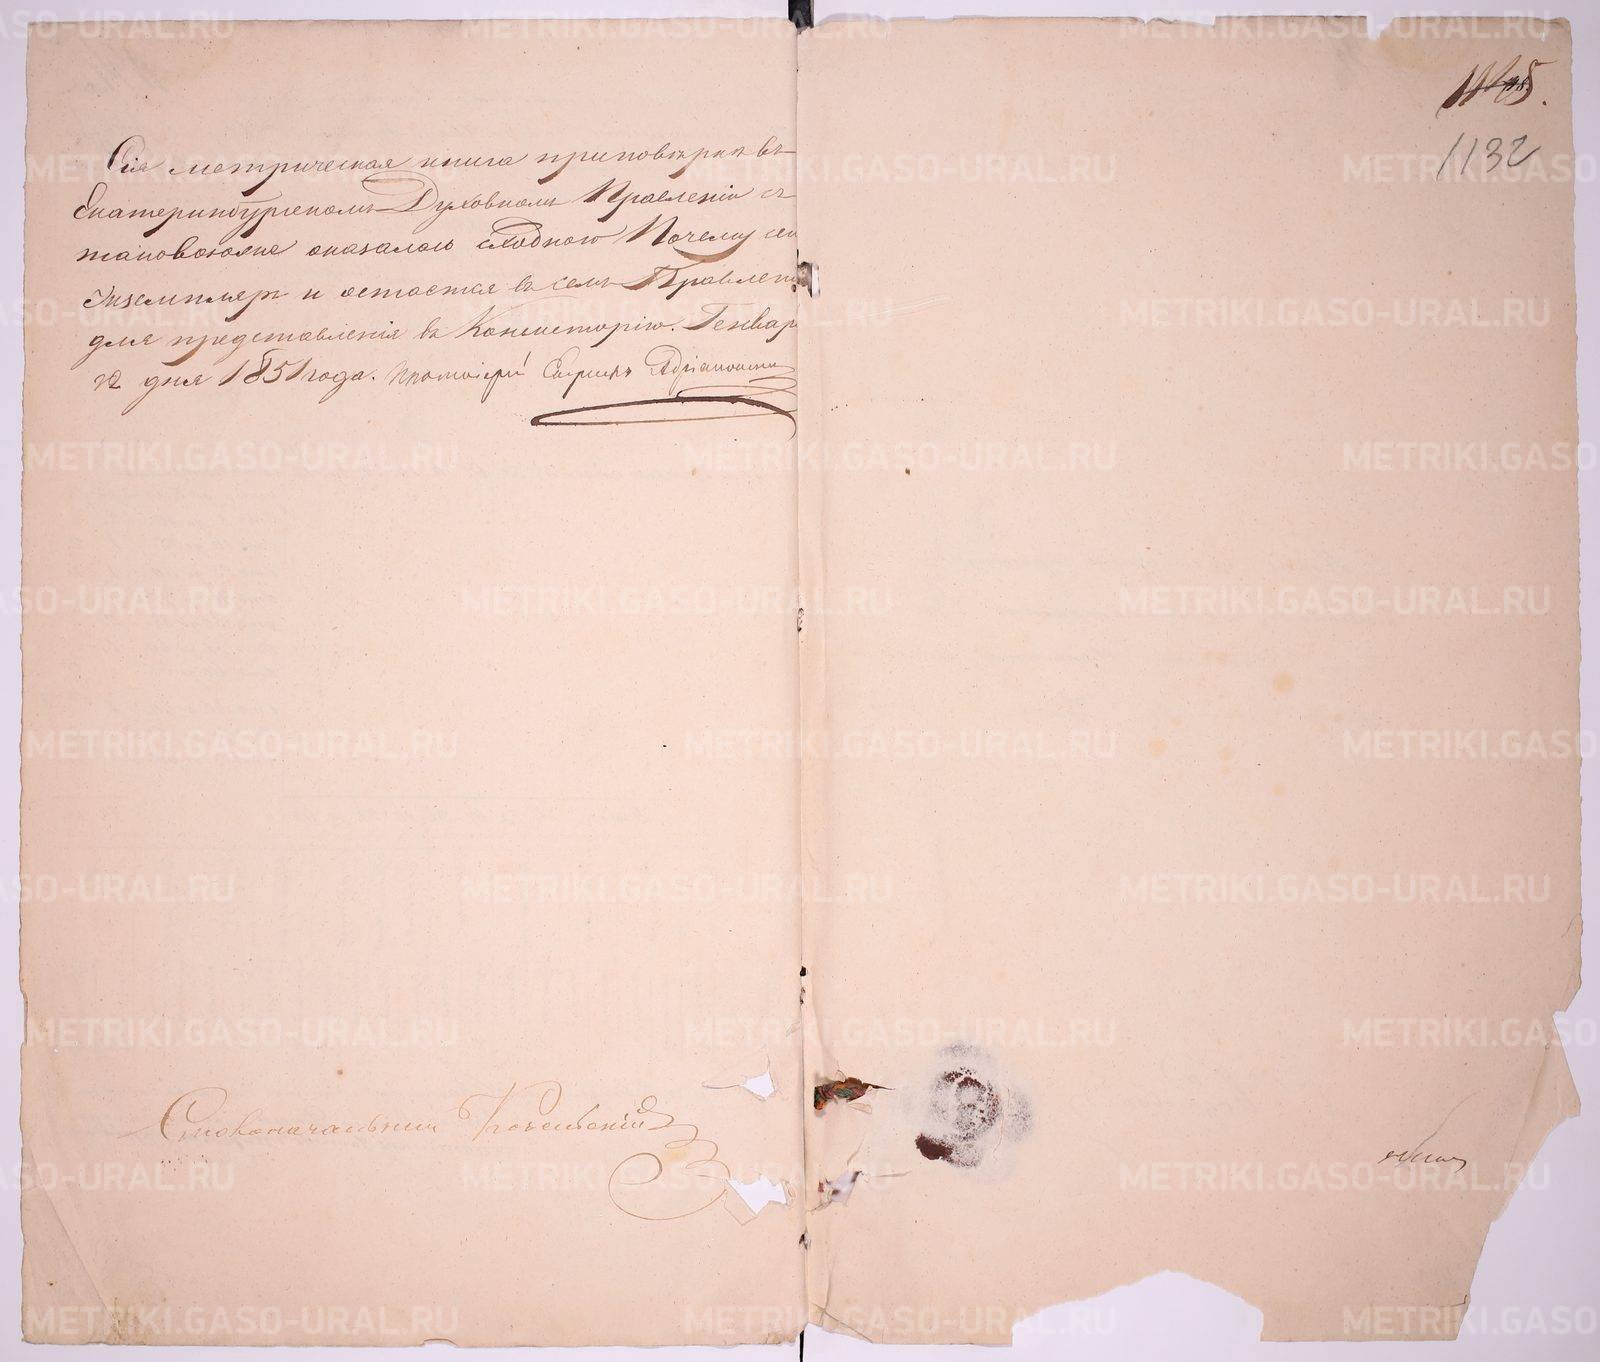 Сія метрическая книга приповѣркѣ въ
Екатеринбургскомъ Духовномъ Правленіи съ
таковоюже оказалась сходною Почему сей
Экземпляръ и остается въ семъ Правлені
для представленія въ Консисторію. Генвар
дня 1851 года. Протоіерей
Столоначальникъ
1132
METRIKI.GASO-URAL.RU